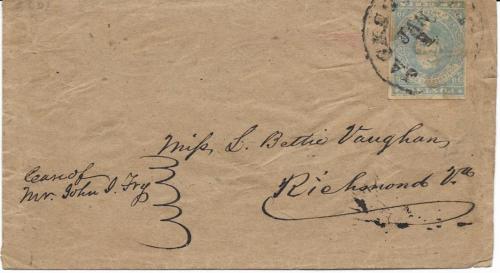 JACKS
JAN
Miss L. Bettie Vaughan,
Richmond Va
Care of
Mr. John I. Fry